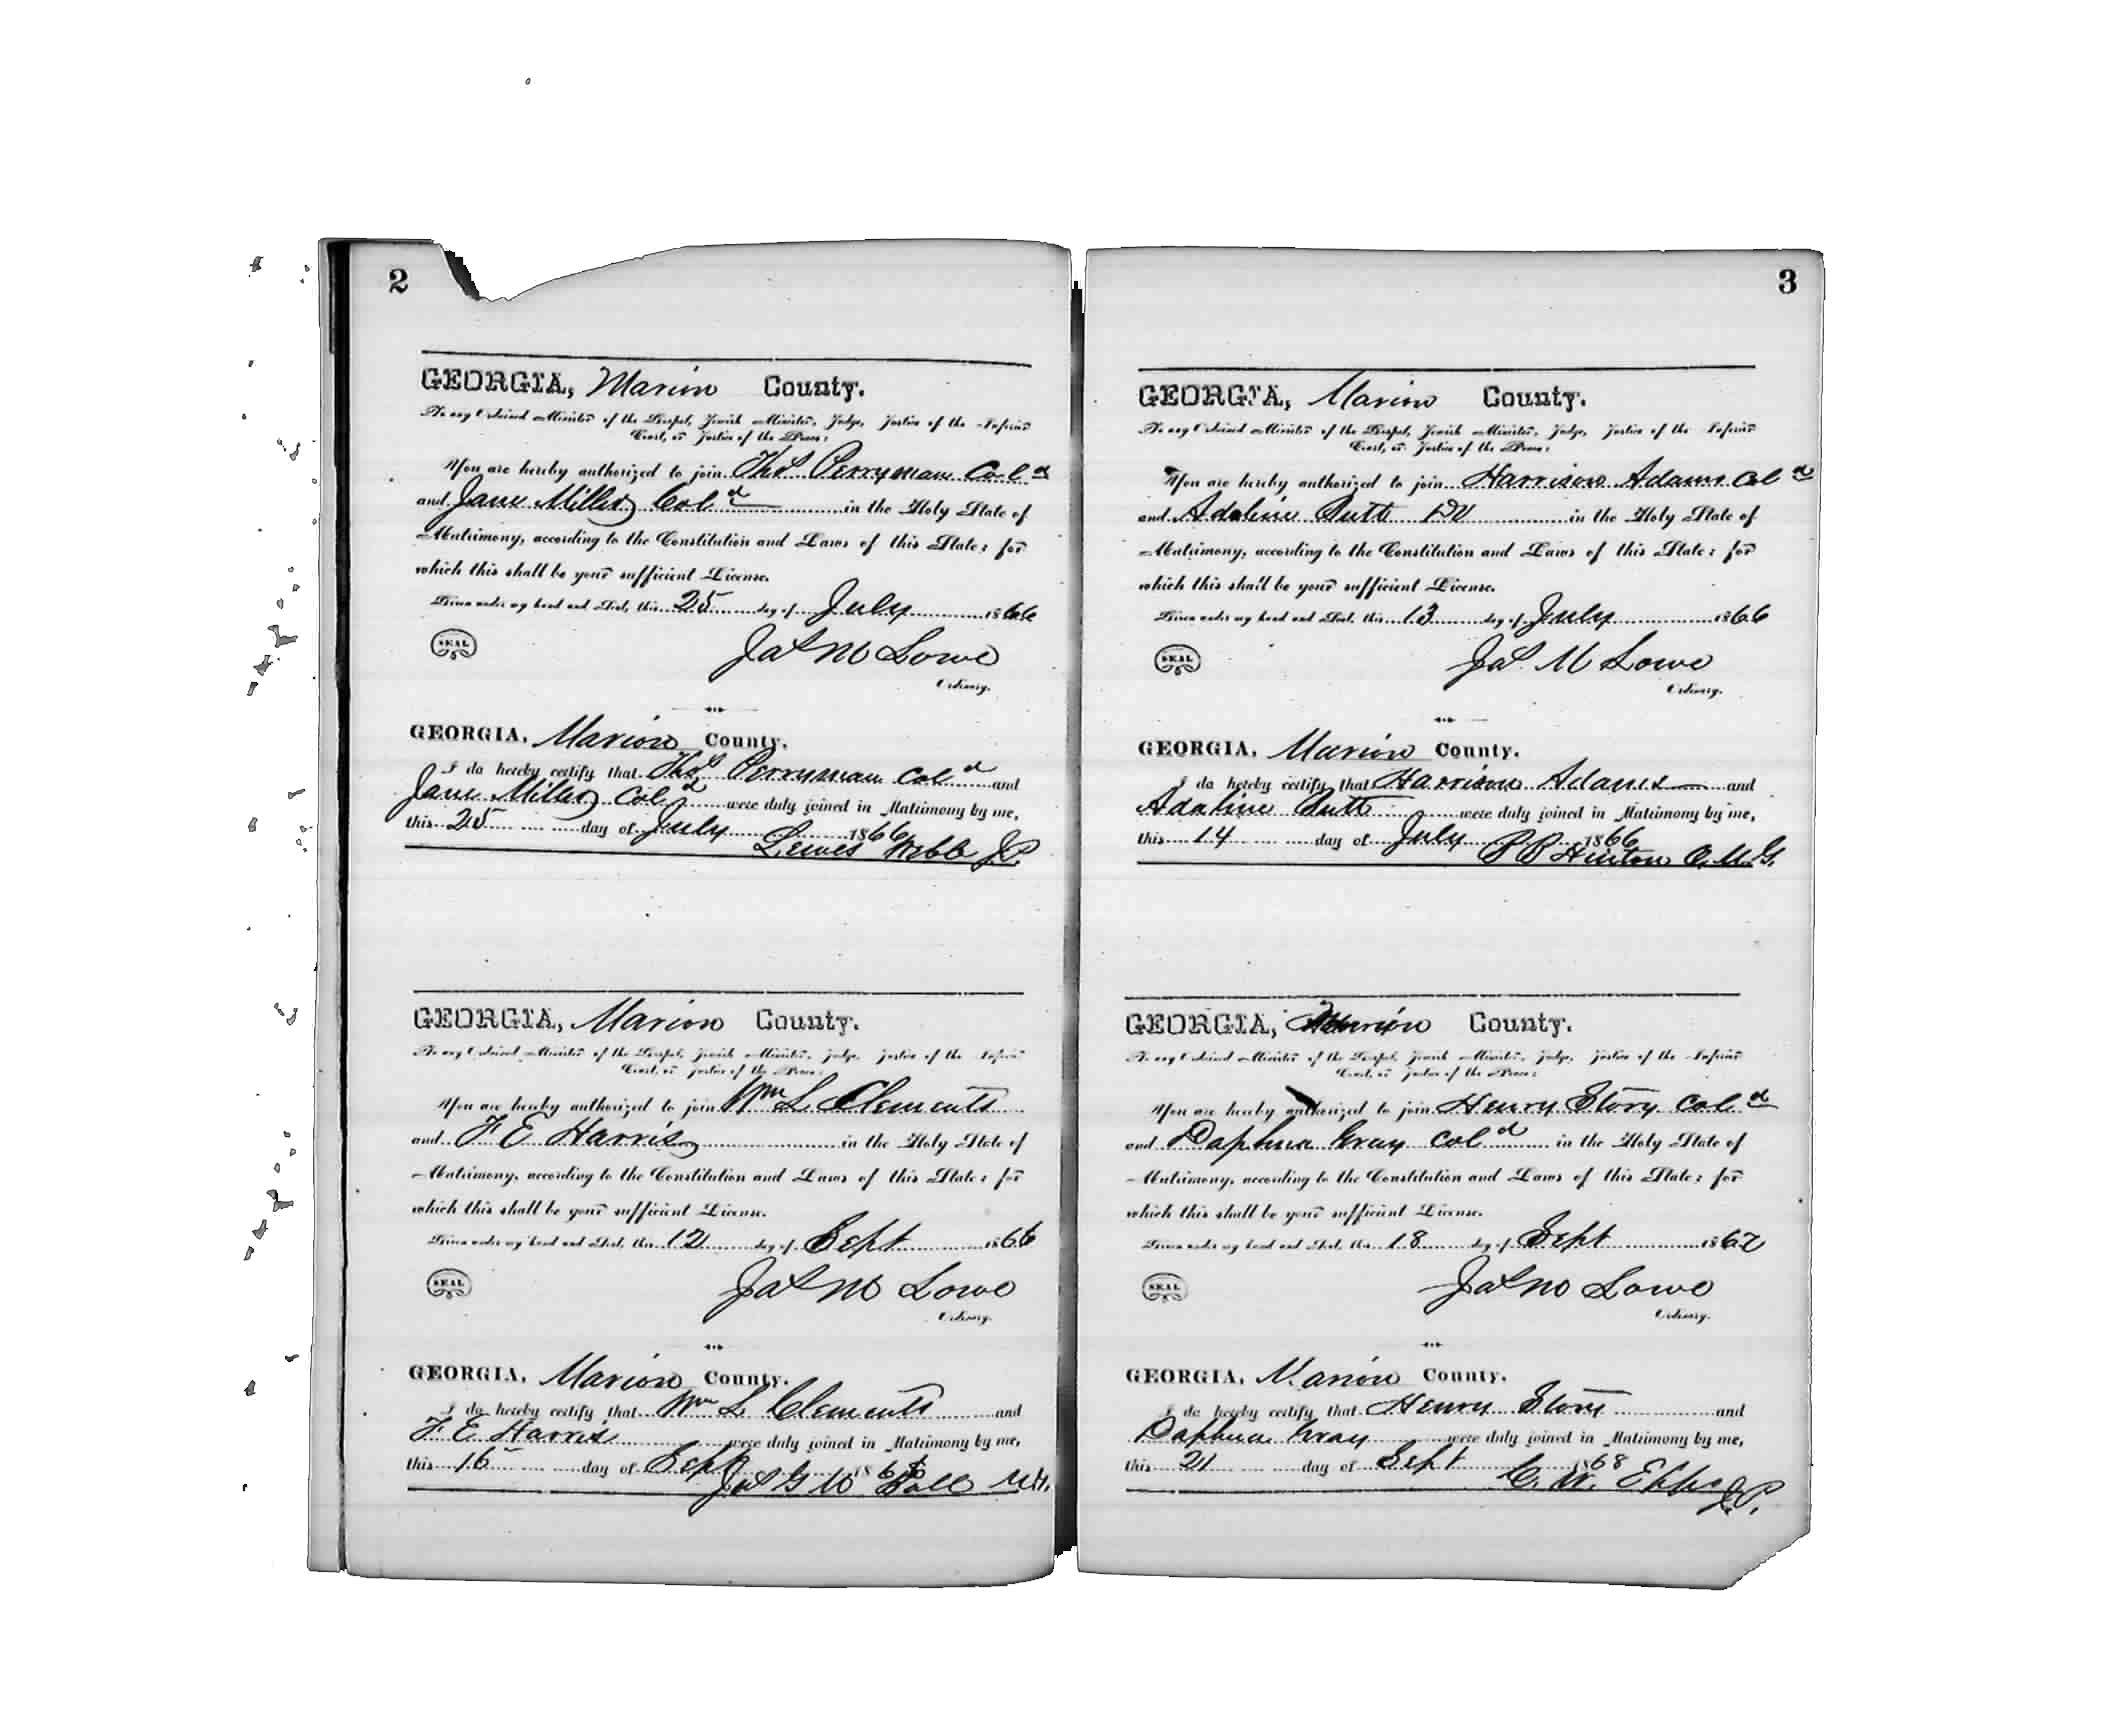 2
GEORGIA, Marion County.
To any Ordained Minister of the Gospel, Jewish Minister, Judge, Justice of the Inferior
Court, or Justice of the Peace:
You are hereby authorized to join Thos Perryman Cold
and Jane Miller Cold in the Holy State of
Matrimony, according to the Constitution and Laws of this State; for
which this shall be your sufficient License.
Given under my hand and Seal, this 25 day of July 1866
SEAL
Jas M Lowe
Ordinary.
GEORGIA, Marion County.
I do hereby certify that Thos Perryman Cold and
Jane Miller Cold were duly joined in Matrimony by me,
this 25 day of July 1866
Lewis Webb J.P.
GEORGIA, Marion County.
To any Ordained Minister of the Gospel, Jewish Minister, Judge, Justice of the Inferior
Court, or Justice of the Peace:
You are hereby authorized to join Wm L Clements
and F E Harris in the Holy State of
Matrimony, according to the Constitution and Laws of this State; for
which this shall be your sufficient License.
Given under my hand and Seal, this 12 day of Sept 1866
SEAL
Jas M Lowe
Ordinary.
GEORGIA, Marion County.
I do hereby certify that Wm L Clements and
F E Harris were duly joined in Matrimony by me,
this 15 day of Sept
Jas G W
3
GEORGIA, Marion County.
To any Ordained Minister of the Gospel, Jewish Minister, Judge, Justice of the Inferior
Court, or Justice of the Peace:
You are hereby authorized to join Harrison Adams Cold
and Adaline Butt in the Holy State of
Matrimony, according to the Constitution and Laws of this State; for
which this shall be your sufficient License.
Given under my hand and Seal, this 13 day of July 1866
SEAL
Jas. M Lowe
Ordinary.
GEORGIA, Marion County.
I do hereby certify that Harrison Adams and
Adaline Butt were duly joined in Matrimony by me,
this 14 day of July 1866
Hinton O.M.G.
GEORGIA, Marion County.
To any Ordained Minister of the Gospel, Jewish Minister, Judge, Justice of the Inferior
Court, or Justice of the Peace:
You are hereby authorized to join Henry Story Cold
and Daphna Gray Cold in the Holy State of
Matrimony, according to the Constitution and Laws of this State; for
which this shall be your sufficient License.
Given under my hand and Seal, this 18 day of Sept
SEAL
Jas M Lowe
Ordinary.
GEORGIA, Marion County.
I do hereby certify that Henry Story and
Daphna Gray were duly joined in Matrimony by me,
this 21 day of Sept 1868
C. W. Epps J.P.